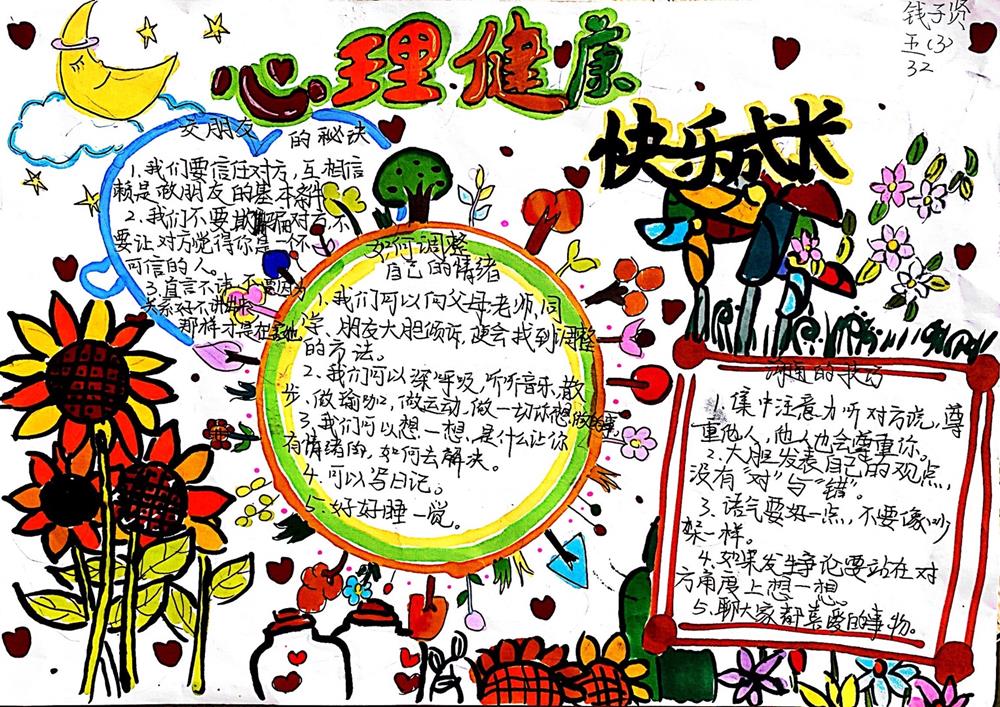 钱子贤
五(3)
32
心理健康
快乐成长
交朋友的秘诀
1.我们要信任对方,互相信
赖是做朋友的基本条件
2.我们不要欺骗对方,不
要让对方觉得你是一个不
可信的人。
3.直言不讳,不要因为
关系好不讲
如何调整
自己的情绪
1.我们可以向父母老师,同
学、朋友大胆倾诉,便会找到调整
的方法。
2.我们可以深呼吸,听听音乐,散
步、做瑜加,做运动,做一切你想做的事
3.我们可以想一想,是什么让你
有情绪的,如何去解决。
4.可以写日记。
5.好好睡一觉。
沟通的技巧
1.集中注意力听对方说,尊
重他人,他人也会尊重你。
2.大胆发表自己的观点,
没有“对”与“错”。
3.语气要好一点,不要像吵
架一样。
4.如果发生争论要站在对
方角度上想一想。
5.聊大家都喜爱的事物。